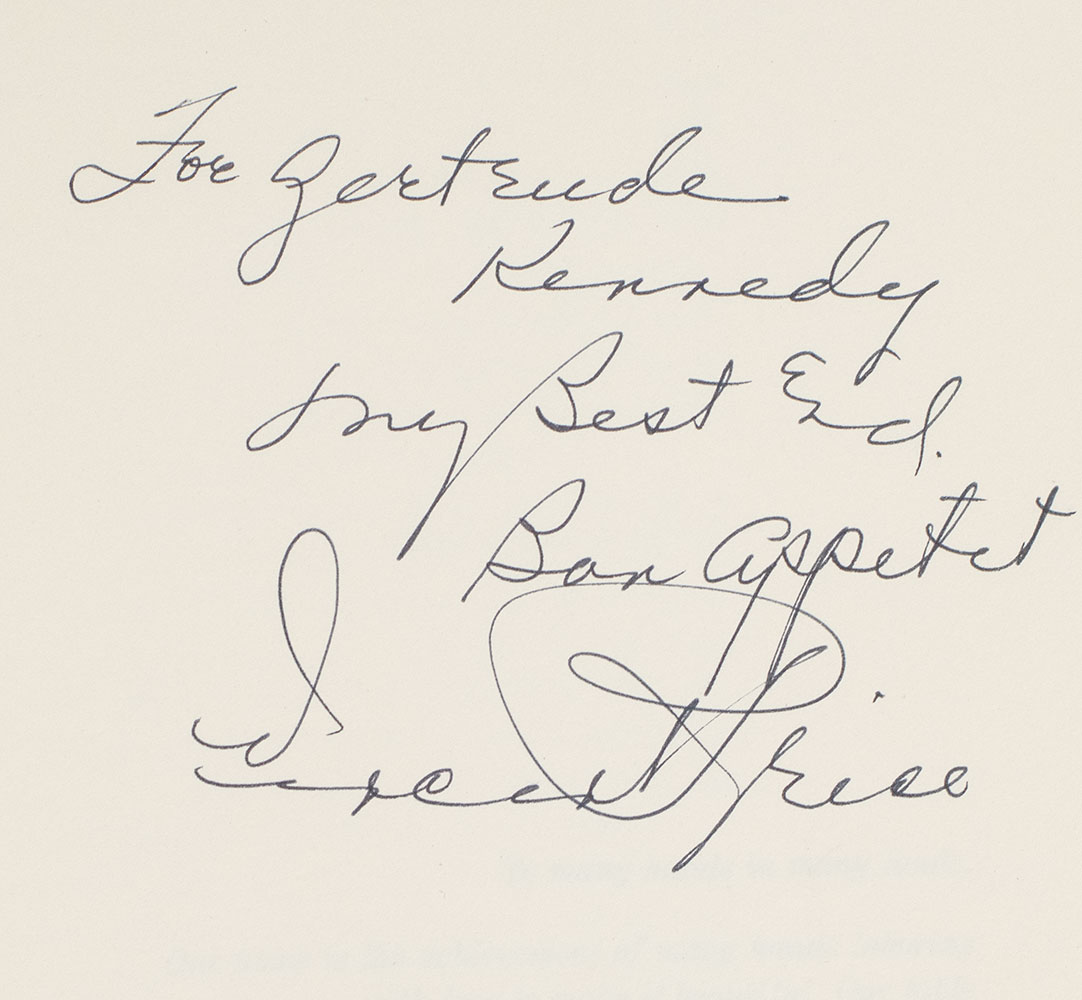 For Gertrude
Kennedy
my Best Ed.
Bon Appetit
Vincent Price